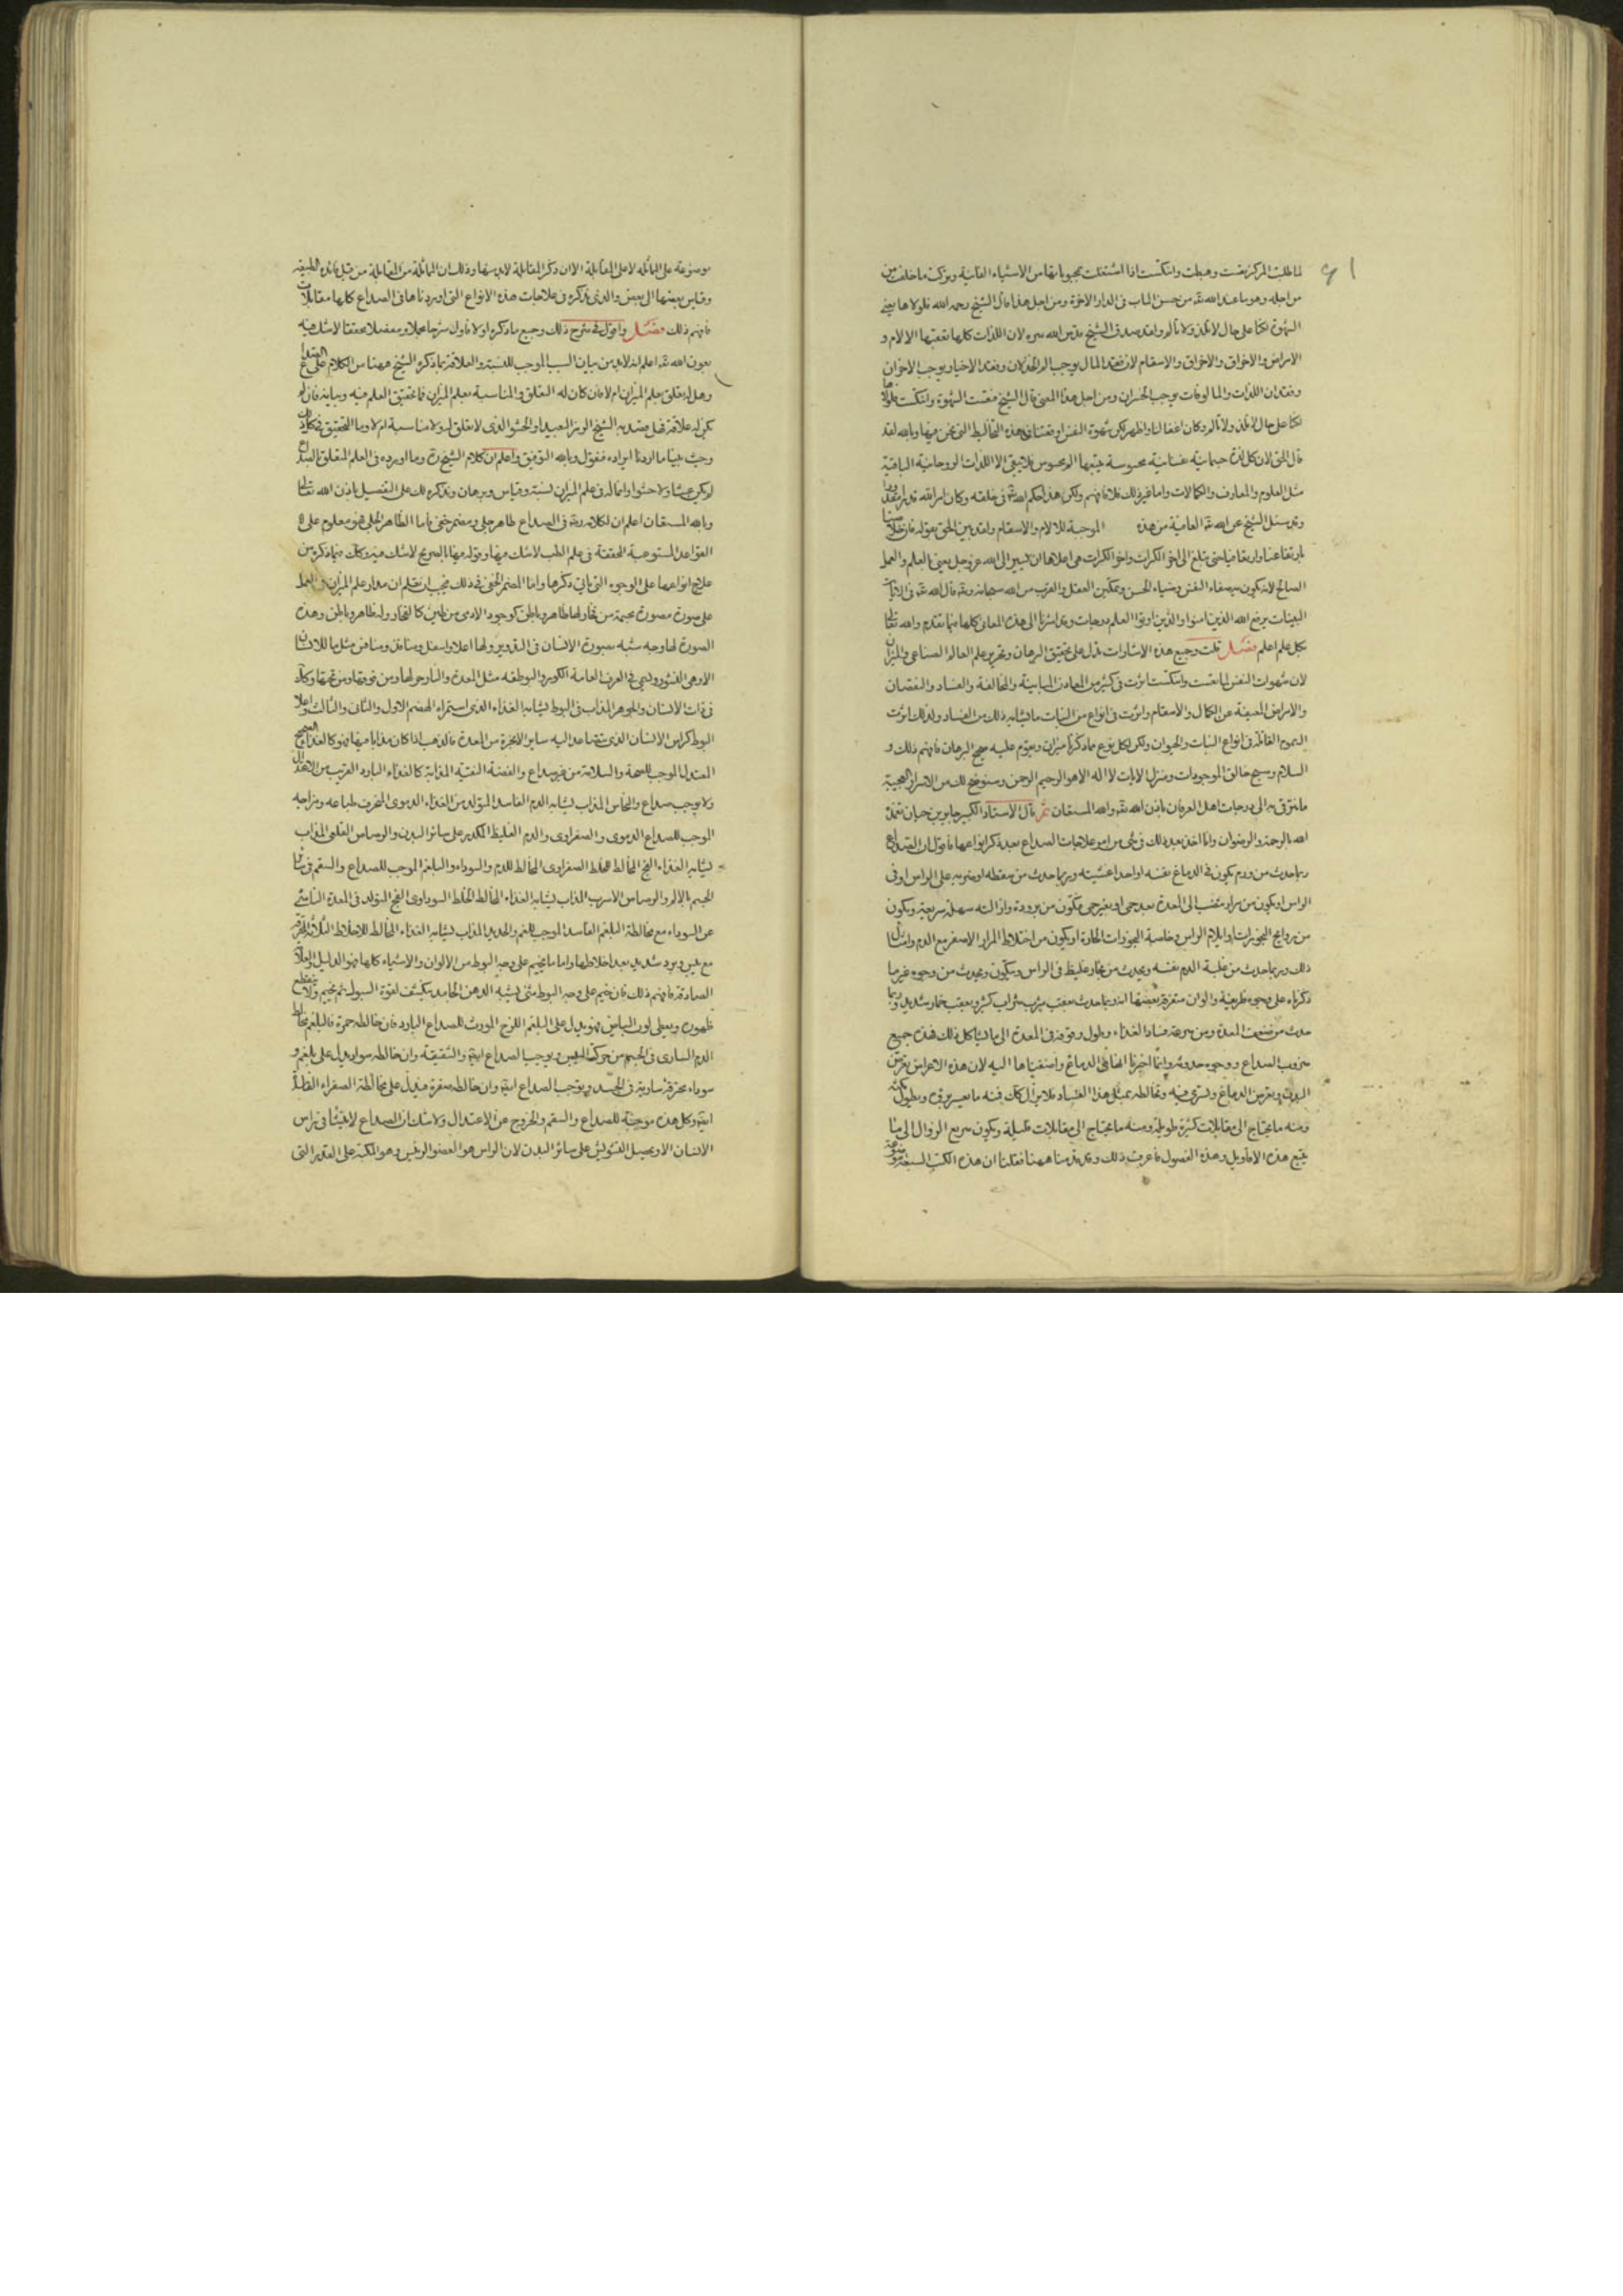 لما طلبت المركز نقصت وهبطت وانتكست اذا اشتغلت بمحبوباتها من الاشياء الفانية وتركت ما خلقت من
من اجله وهو ما عند الله تعالى من حسن الماب فى الدار الاخرة ومن اجل هذا قال الشيخ رحمه الله فلولا هابنى
الشهوة لكنا على حال لا نلذ ولا نألم ولقد صدق الشيخ قدس الله سره لان اللذات كلها تعقبها الالام و
الامراض والاحراق والاسقام لان فقد المال يوجب وفقد الاخيار يوجب الاحزان
وفقدان اللذات والمالوفات يوجب الخسران ومن اجل هذا المعنى قال الشيخ فنقصت الشهوة وانتكست فلولا
لكنا على حال لا نلذ ولا نألم وكان اغفالنا واظهر لكن شهوة النفس اوقعتنا فى هذه التخاليط التى نحن فيها وبالله لقد
قال الحق لان كل لذة جسمانية نفسانية محسوسة يتبعها الم محسوس فلا يبقى الا اللذات الروحانية الباقية
مثل العلوم والمعارف والكمالات واما غير ذلك فلا فافهم ولكن هذا حكم الله تعالى فى خلقه وكان امر الله قدرا مقدورا
وقد سئل الشيخ عن الله تعالى العافية من هذه الموجبة للالام والاسقام ولقد بين الحق بقوله فان خلاصنا
بارتفاعنا وارتفاعنا حتى نبلغ الى اخر الكرات واخر الكرات هى اعلاها ان نسير الى الله عز وجل يعنى العلم والعمل
الصالح لانه يكون به صفاء النفس وضياء الحسن وتمكين العقل والقرب من الله سبحانه وتعالى قال الله تعالى فى الايات
البينات يرفع الله الذين امنوا والذين اوتوا العلم درجات وقد اشرنا الى هذه المعانى كلها فيما تقدم والله تعالى
بكل علم اعلم فصل قلت وجميع هذه الاشارات تدل على تحقيق البرهان وتقرير علم العالم الصناعى والميزان
لان شهوات النفس لما نقصت وانتكست اثرت فى كثير من المعادن المباينة والمخالفة والفساد والنقصان
والامراض المعيقة عن الكمال والاسقام واثرت فى انواع من النبات ما يشابه ذلك من الفساد ولذلك اثرت
السموم القاتلة فى انواع النبات والحيوان ولكن لكل نوع مما ذكرنا ميزان ويقوم عليه صحيح البرهان فافهم ذلك و
السلام وسبح خالق الموجودات ومنزل الايات لا اله الا هو الرحيم الرحمن وسنوضح لك من الاسرار العجيبة
ما نترقى به الى درجات اهل العرفان باذن الله تعالى والله المستعان ثم قال الاستاذ الكبير جابر بن حيان تغمده
الله بالرحمة والرضوان وانا اخذ بعد ذلك فى شئ من امر علاجات الصداع بعد ذكر انواعها فاقول ان الصداع
ربما حدث من ورم يكون فى الدماغ نفسه او احد اغشيته وربما حدث من سقطه او ضربه على الراس او فى
الراس او يكون من مرار ينصب الى المعدة بعد حمى او بغير حمى فيكون من برودة وازالته سهلة سريعة ويكون
من روايح البخورات وايلام الراس وخاصة البخورات الحارة او يكون من اختلاط المرار الاصفر مع الدم وامثال
ذلك وربما حدث من غلبة الدم نفسه ويحدث من بخار غليظ فى الراس ويكون ويحدث من وجوه غير ما
ذكرناه على وجوه ظريفة والوان متفرقة بعضها وربما حدث بعقب شرب شراب كثير وبعقب خمار شديد وربما
حدث من ضعف المعدة ومن سرعة فساد الغذاء وطول وقوفه فى المعدة الى ما يشاكل ذلك فهذه جميع
ضروب الصداع ووجوه حدوثه وانما اخرنا الفاظ الدماغ واضفناها اليه لان هذه الاعراض تعرض
البدن وتعرض الدماغ وتسترخى فيه وتخالطه بمثل هذا الفساد فلا يزال كك فمنه ما يعسر برؤه ويطول مكثه
ومنه ما يحتاج الى مقابلات كثيرة طويلة ومنه ما يحتاج الى مقابلات قليلة ويكون سريع الزوال الى ما
يتبع هذه الاقاويل وهذه الفصول فاعرف ذلك وقد قدمنا ههنا فقلنا ان هذه الكتب السبعة
موضوعة على المماثلة لا على المقابلة الا ان ذكر المقابلة لا بد منها وذلك ان المماثلة من المقابلة من قبل مائده الطبيعة
وقياس بعضها الى بعض والذى نذكره فى علاجات هذه الانواع التى اوردناها فى الصداع كلها مقابلات
فافهم ذلك فصل واقول فى شرح ذلك وجميع ما ذكره اولا فاول شرحا مجملا ومفصلا محققا لا شك فيه
بعون الله تعالى اعلم انه لا بد من بيان السبب الموجب للنسبة والعلاقة بما ذكره الشيخ ههنا من الكلام على الصداع
وهل له تعلق بعلم الميزان ام لا فان كان له التعلق والمناسبة بعلم الميزان فما تحقيق العلم فيه وبيانه فان لم
يكن له علاقة فهل قصد به الشيخ الرمز البعيد او الحشو الذى لا تعلق له ولا مناسبة ام لا وما التحقيق فى كلامه
وحيث بينا ما اردنا ايراده فنقول وبالله التوفيق واعلم ان كلام الشيخ وما اورده فى العلم المتعلق بالصداع
لم يكن عبثا ولا حشوا وانما له فى علم الميزان نسبة وقياس وبرهان ونذكره لك على التفصيل باذن الله تعالى
وبالله المستعان اعلم ان لكلامه فى الصداع ظاهر جلى ومضمر خفى فاما الظاهر الجلى فهو معلوم على
القواعد المستوجبة المحققة فى علم الطب لا شك فيها وقوله فيها بالصريح لا شك فيه وكك فيما ذكره من
علاج انواعها على الوجوه التى ياتى ذكرها واما المضمر الخفى فى ذلك فيجب ان تعلم ان مدار علم الميزان والعمل
على صورة مصورة مجسمة من فخار لها ظاهر وباطن كوجود الادمى من طين كالفخار وله ظاهر وباطن وهذه
الصورة لها وجه شبه بصورة الانسان فى التدوير ولها اعلا واسفل ومنافذ ومنافس مثل ما للانسان
الا وهى التنور ويسمى فى العرف العامة الكور والبوطقه مثل المعدة والنار حولها ومن فوقها ومن تحتها وكك
فى ذات الانسان والجوهر المذاب فى البوط يشابه الغذاء الذى استمراه الهضم الاول والثانى والثالث واعلا
البوط كراس الانسان الذى يتصاعد اليه ساير الابخرة من المعدة فالذهب اذا كان مذابا فيها فهو كالغذاء الصحيح
المعتدل الموجب للصحة والسلامة من غير صداع والفضة النقية المذابة كالغذاء البارد القريب من الاعتدال
ولا يوجب صداع والنحاس المذاب يشابه الدم الفاسد المتولد من الغذاء الدموى المنحرف طباعه ومزاجه
الموجب للصداع الدموى والصفراوى والدم الغليظ المكدر على سائر البدن والرصاص القلعى المذاب
يشابه الغذاء الفج المخالط للخلط الصفراوى المخالط للدم والسوداء والبلغم الموجب للصداع والسقم فى سائر
الجسم بالالم والرصاص الاسرب المذاب يشابه الغذاء المخالط الخلط السوداوى الفج المتولد فى المعدة الناشئ
عن السوداء مع مخالطة البلغم الفاسد الموجب للغم والحديد المذاب يشابه الغذاء المخالط للاخلاط الثلاثة المحترقة
مع يبس وبرد شديد بعد اخلاطها واما ما يخيم على وجه البوط من الالوان والاشياء كلها فهو الدليل والعلامة
الصادقة فافهم ذلك فان خيم على وجه البوط شئ يشبه الدهن الجامد ينكشف لقوة السبوك ثم يخيم ولا ينقطع
ظهوره ويعطى لون البياض فهو يدل على البلغم اللزج المورث للصداع البارد فان خالطه حمرة فالبلغم مخالط
الدم السارى فى الجسم من حركة اليبس ويوجب الصداع ايضا والشقيقة وان خالطه سواد يدل على بلغم و
سوداء محترقة سارية فى الجسد ويوجب الصداع ايضا وان خالطه صفرة فيدل على مخالطة الصفراء الغليظة
ايضا وكل هذه موجبة للصداع والسقم والخروج عن الاعتدال ولا شك ان الصداع لا ينشا فى راس
الانسان الا ويحصل التشويش على سائر البدن لان الراس هو العضو الرئيس وهو المكبة على القدر التى